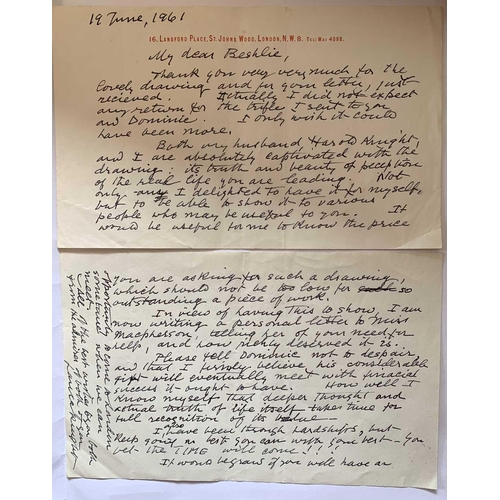 19 June, 1961
16, LANGFORD PLACE, ST. JOHNS WOOD, LONDON, N.W.8. TEL: MAI 4088.
My dear Beshlie,
Thank you very very much for the
lovely drawing and for your letter, just
recieved. Actually I did not expect
any return for the trifle I sent to you
and Dominic. I only wish it could
have been more.
Both my husband, Harold Knight,
and I are absolutely captivated with the
drawing; its truth and beauty of peception
of the real life you are leading. Not
only am I delighted to have it for myself,
but to be able to show it to various
people who may be useful to you. It
would be useful for me to know the price
you are asking for such a drawing,
which should not be too low for so
outstanding a piece of work.
In view of having this to show, I am
now writing a personal letter to Miss
Macpherson, telling her of your need for
help, and how merly deserved it is.
Please tell Dominic not to despair,
and that I firmly believe his considerable
gift will eventually meet with finacial
success it ought to have. How well I
know myself that deeper thought and
actual truth of life itself takes time for
full recognition of its
I also have been through hardships, but
keep going as best you can with your best - you
bet the TIME will come!!!
It would be grand if you will have an
opportunity to come to London
some time, when we can
meet.
With all the best wishes to you both
from